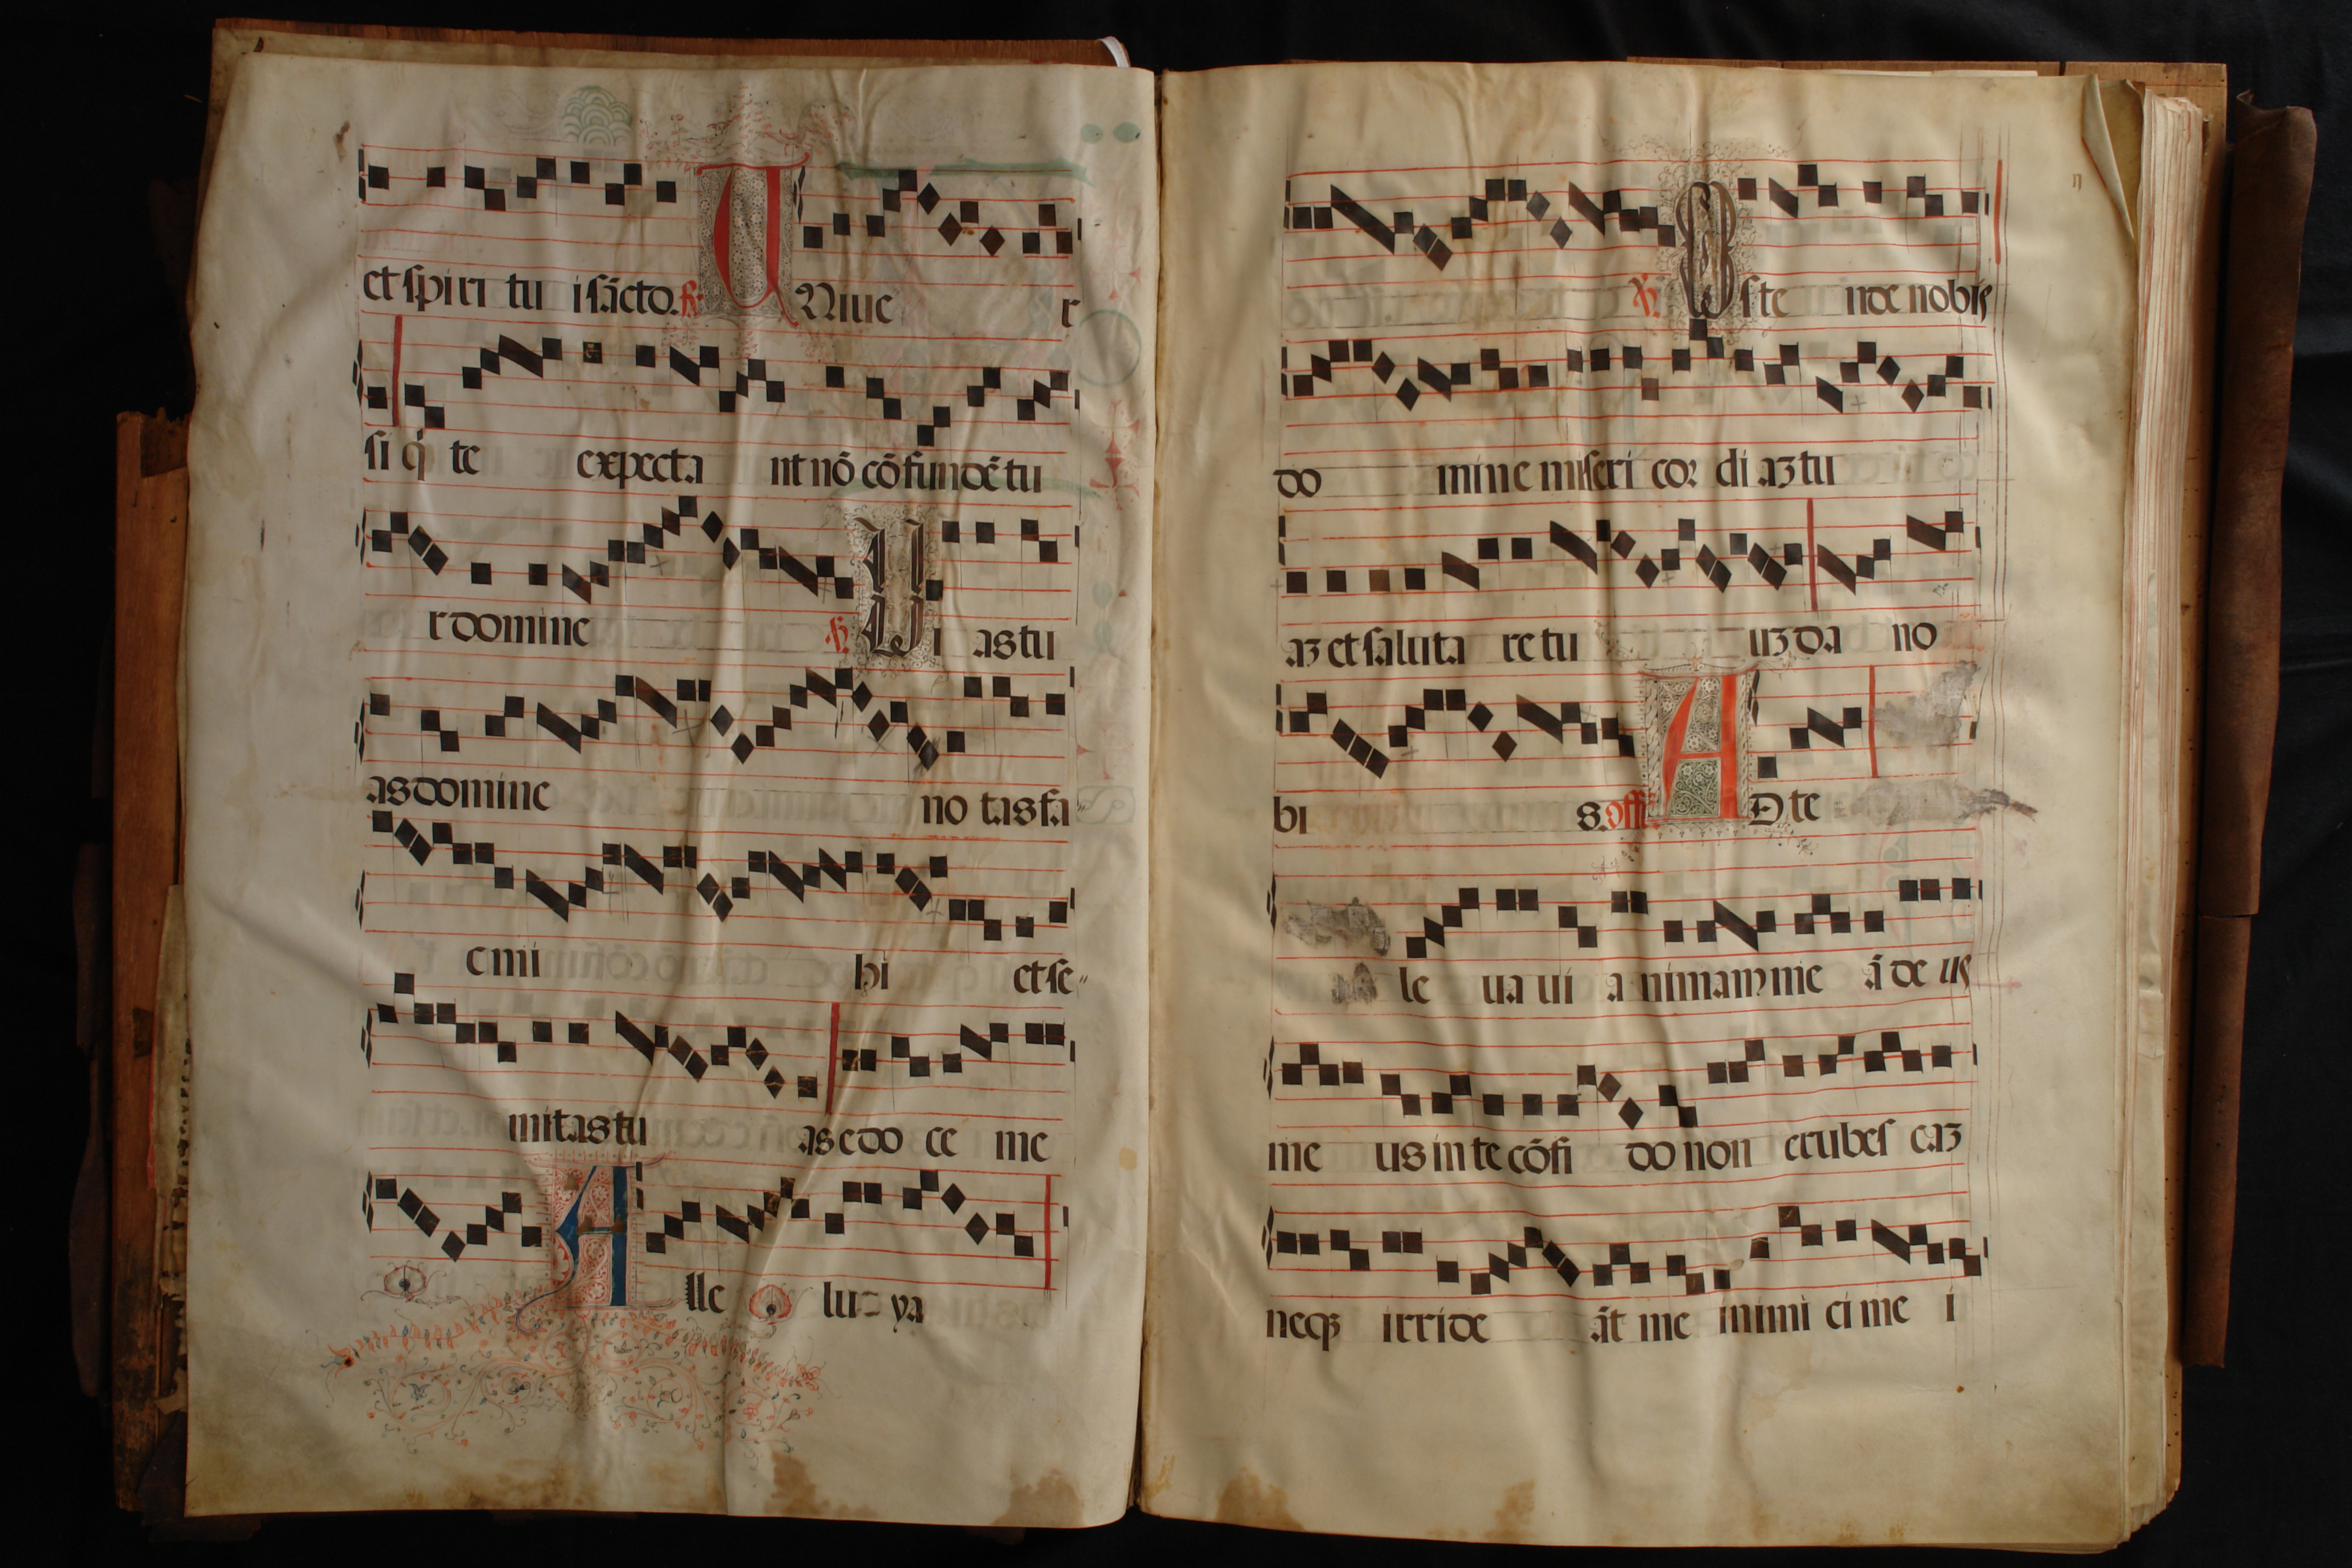 et spiri tu i sācto. ℟. UNiue r
si q̄ te expecta nt nō cō fundē tu
r domine ℣. Vi as tu
as domine no tas fa
c mi hi et se
mitas tu as edo ce me
Alle lu ya
℣. Oste nde nobis
do mine miseri cor di aʒ tu
aʒ et saluta re tu uʒ da no
bi s. Off. AD te
le ua ui a nimam me ā de us
me us in te cōfi do non erubes caʒ
neqʒ irride āt me inimi ci me i